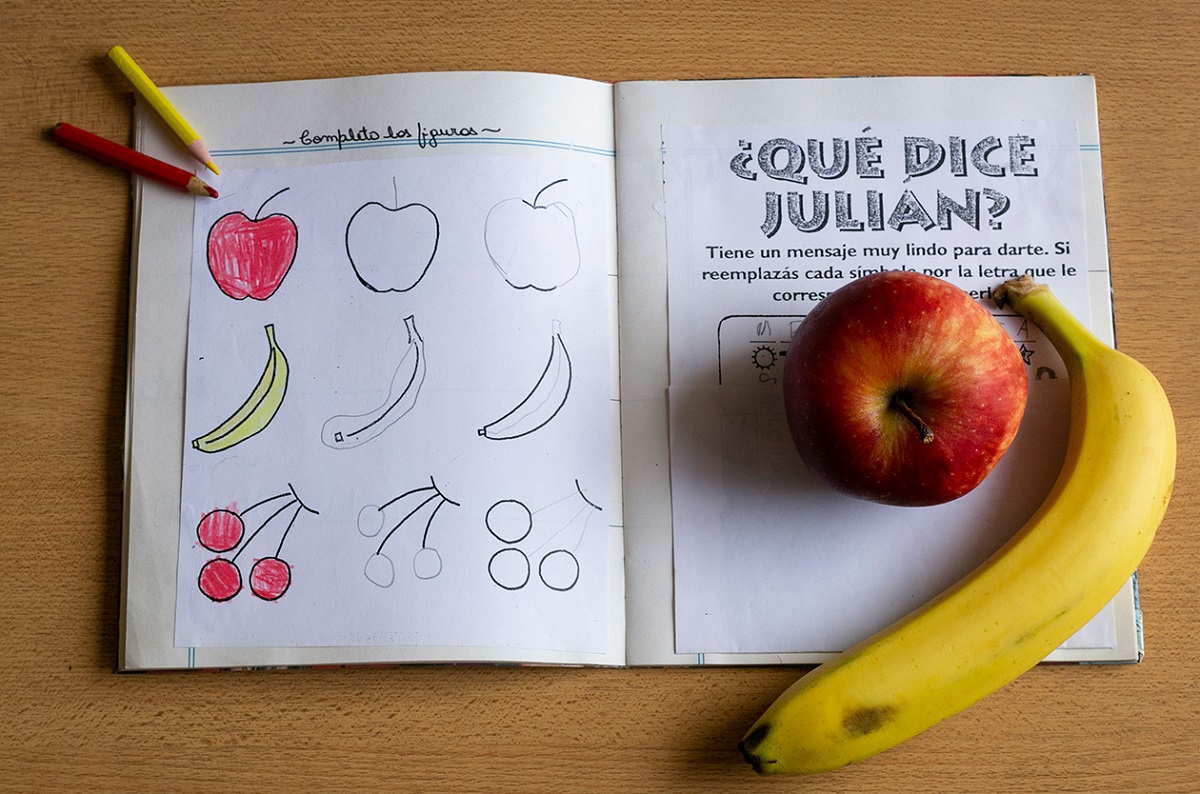 ~ Completo las figuras ~
¿QUÉ DICE
JULIÁN?
Tiene un mensaje muy lindo para darte. Si
reemplazás cada símbolo por la letra que le
A